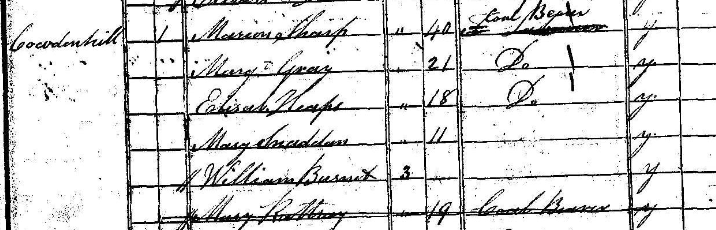 Cowdenhill 1 Marion Sharp " 40 Coal Bearer y
Mary Gray " 21 Do y
Elizab Heaps " 18 Do y
Mary Snaddon " 11 y
William Burnet 3 y
Mary Rattray " 19 Coal Bearer y